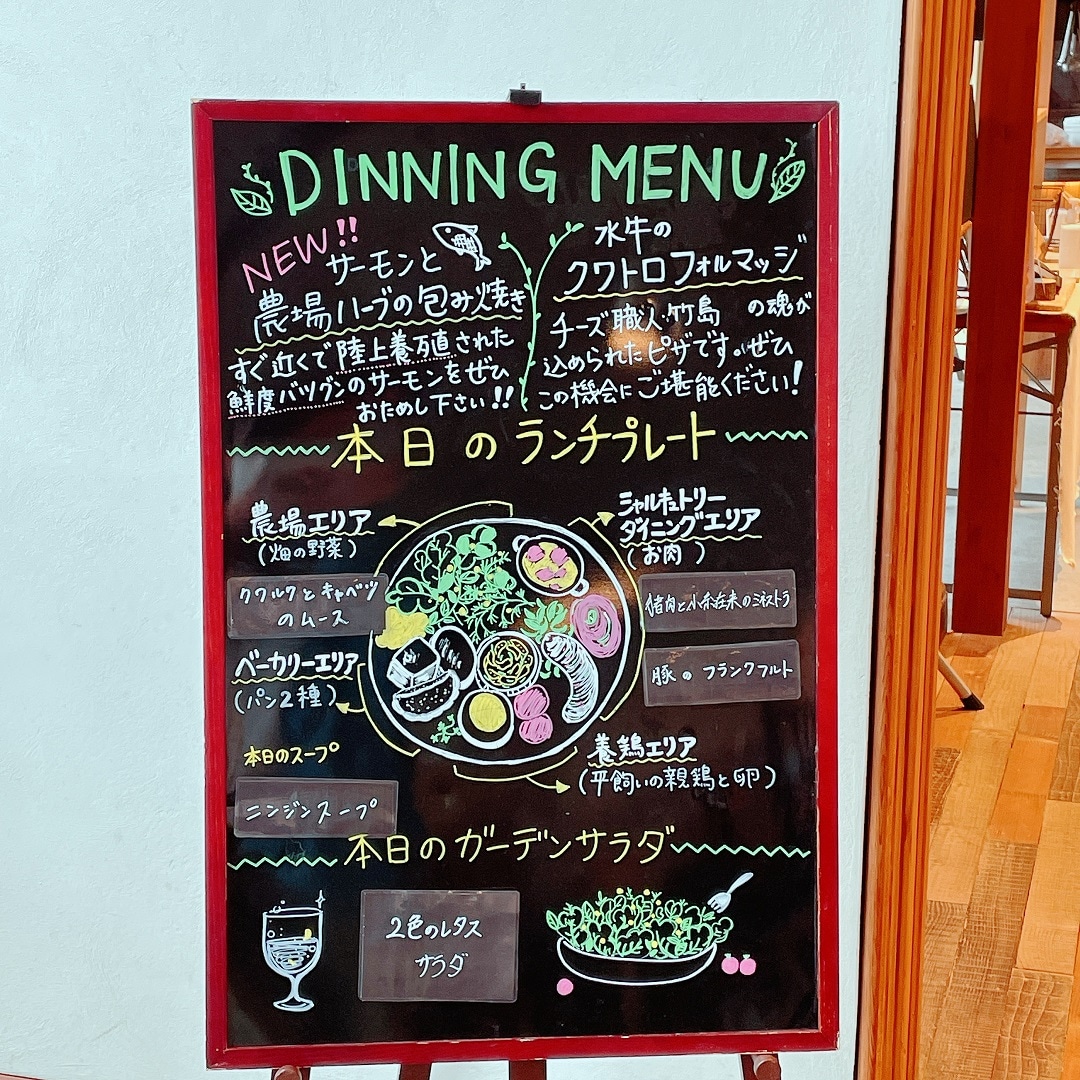 DINNING MENU
NEW!!
サーモンと
農場ハーブの包み焼き
すぐ近くで陸上養殖された
鮮度バツグンのサーモンをぜひ
おためし下さい!!
水牛の
クワトロフォルマッジ
チーズ職人・竹島 の魂が
込められたピザです。ぜひ
この機会にご堪能ください!
本日のランチプレート
農場エリア
(畑の野菜)
クワルクとキャベツ
のムース
ベーカリーエリア
(パン2種)
本日のスープ
ニンジンスープ
シャルキュトリー
ダイニングエリア
(お肉)
猪肉と小糸在来の
豚のフランクフルト
養鶏エリア
(平飼いの親鶏と卵)
本日のガーデンサラダ
2色のレタス
サラダ